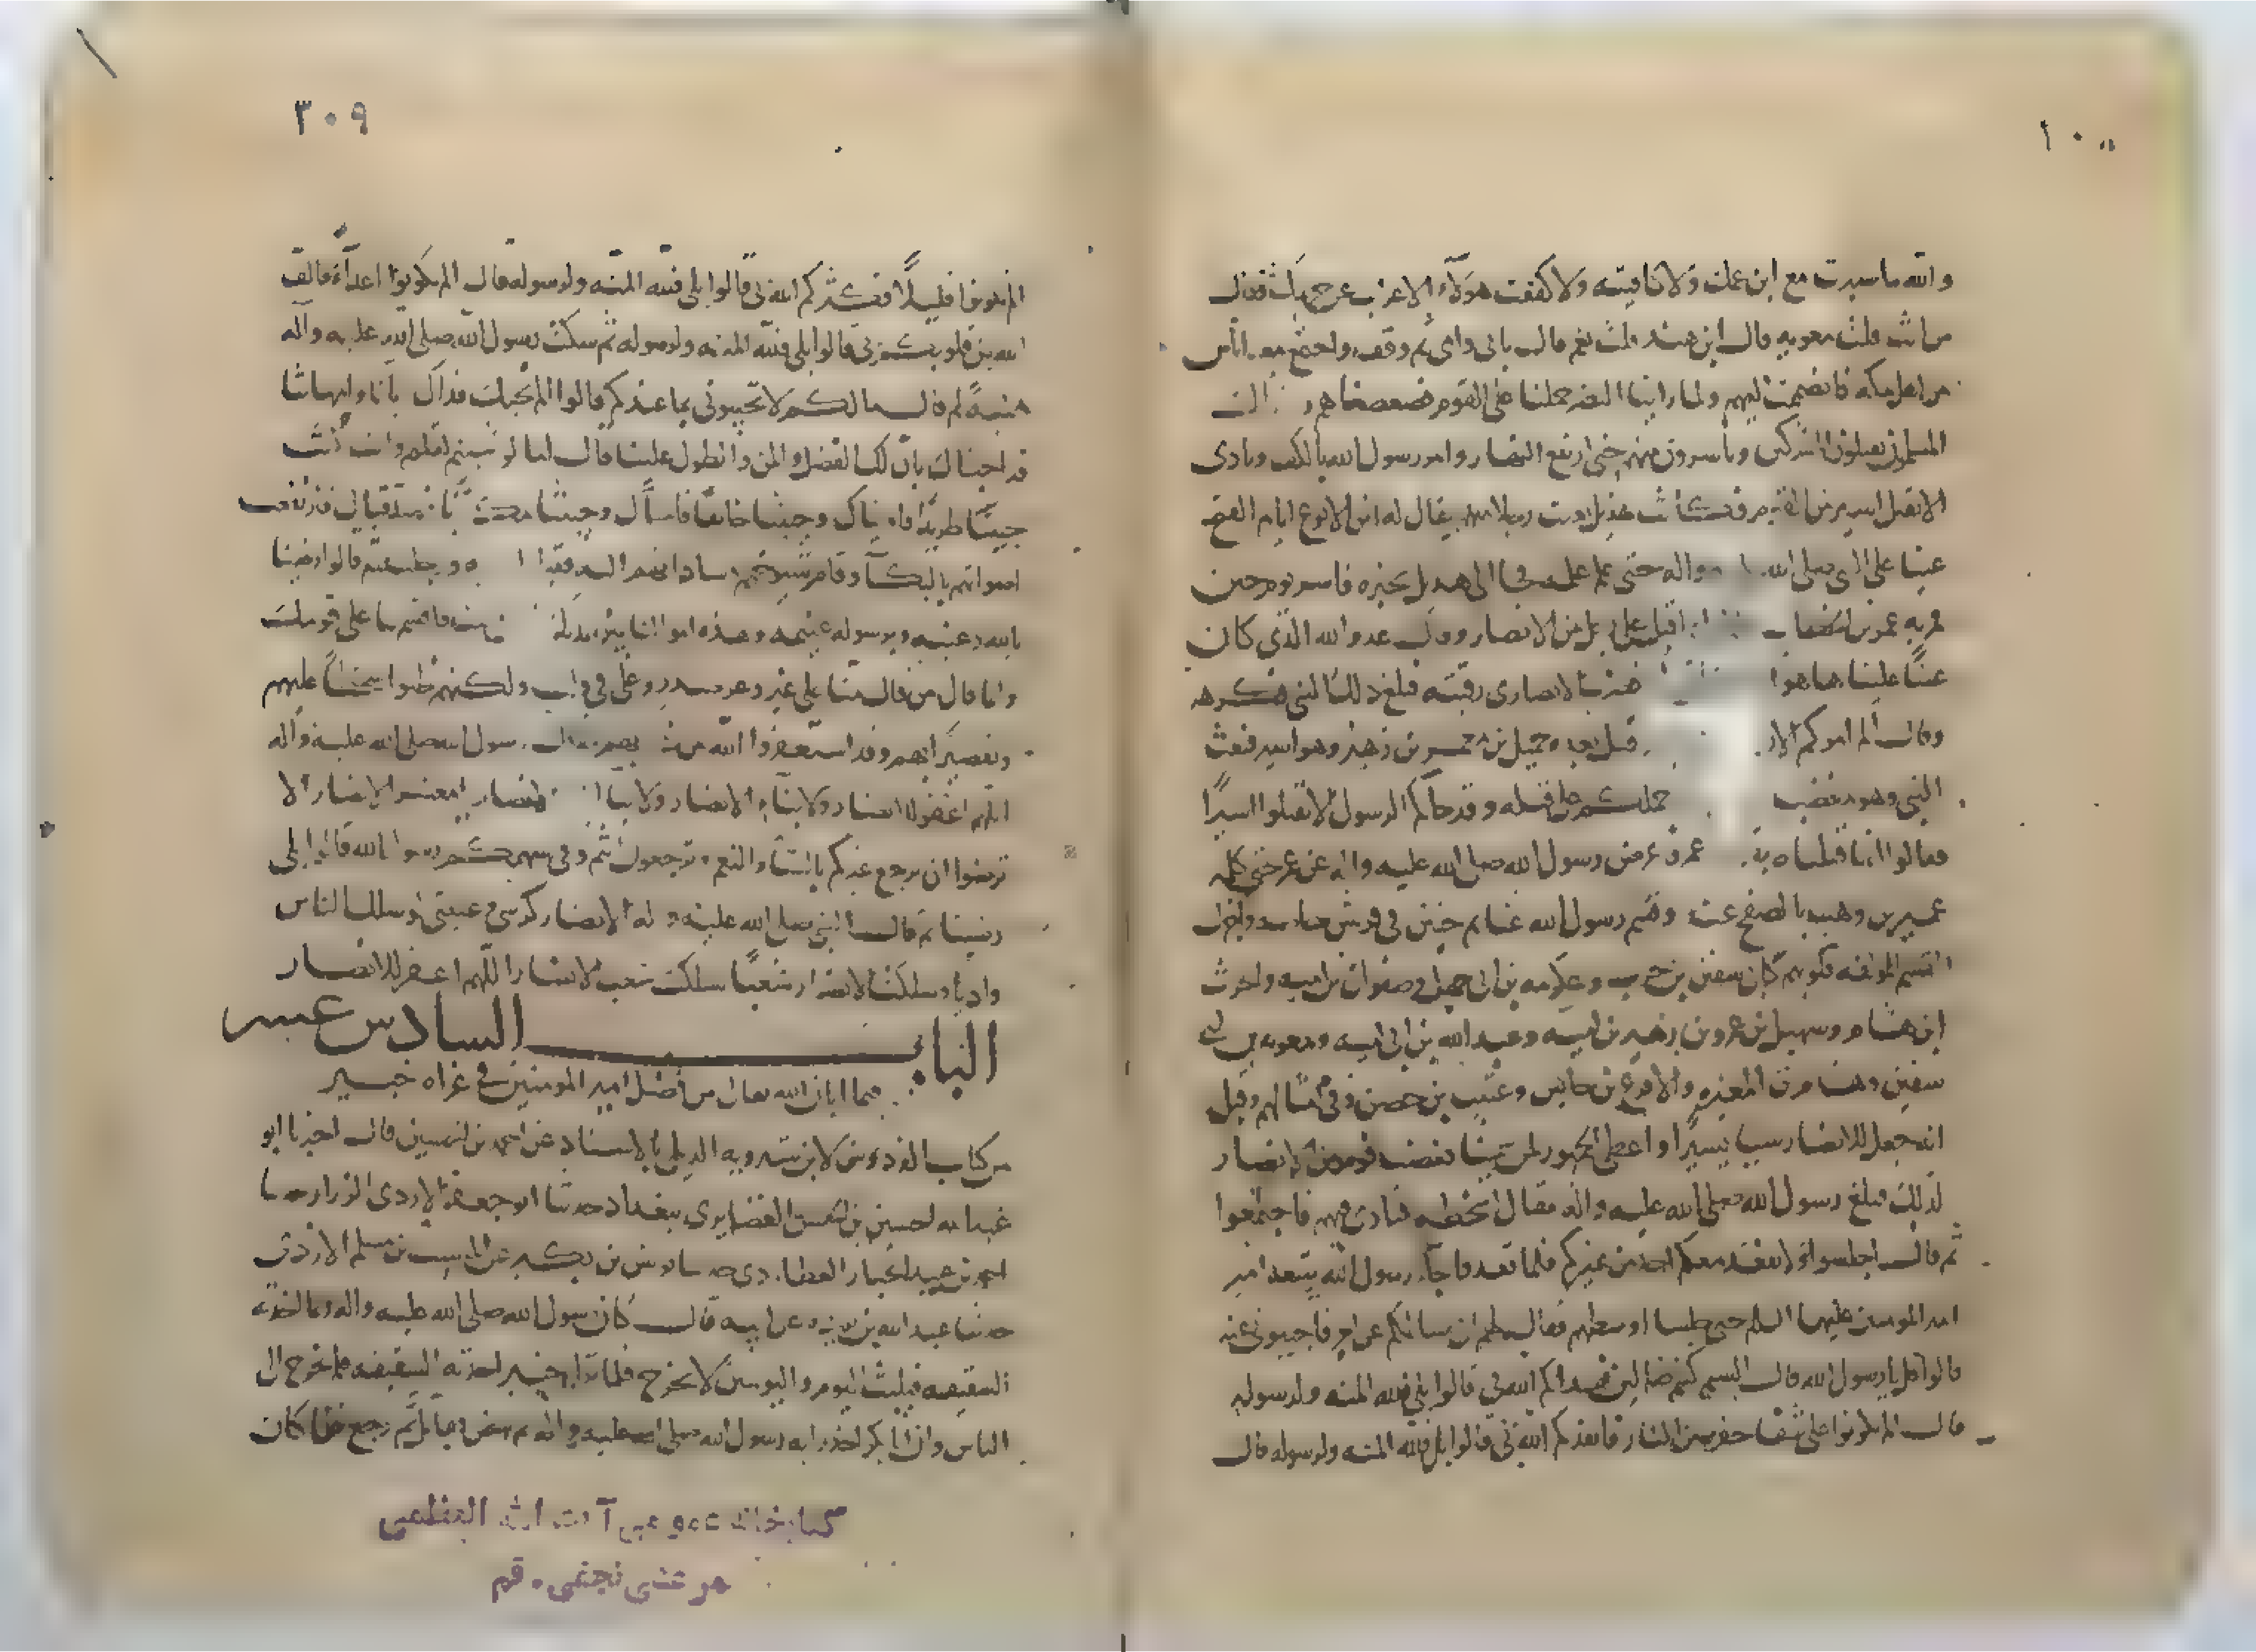 والله ما سرت مع ابن عمك ولا كافيته ولا كففت هؤلاء الاعراب عن حريمك فقال
من انت قلت معويه قال ابن هند قلت نعم قال بابي وامي ثم وقف واجتمع معه اناس
من اهل مكه فانضممت اليهم ولما راينا حملنا على القوم فضعضعناهم
المسلمون يقتلون المشركين وياسرون منهم حتى ارتفع النهار وامر رسول الله بالكف ونادى
الا يقتل اسير من القوم فكانت هذيل بعثت رجلا منهم يقال له ابن الاكوع ايام الفتح
عينا على النبي صلى الله واله حتى علم علمه فجا الى هذيل بخبره فاسر يوم حنين
فمر به عمر بن الخطاب اقبل على رجل من الانصار وقال عدو الله الذي كان
عينًا علينا ها هوا ضرب الانصاري رقبته فبلغ ذلك النبي فكرهه
وقال الم امركم الا قتل بعده جميل بن معمر بن زهير وهو اسير فبعث
النبي وهو مغضب حملكم على قتله وقد جاكم الرسول لا تقتلوا اسيرًا
فقالوا انما قتلناه عمر فاعرض رسول الله صلى الله عليه واله عن عمر حتى كلمه
عمير بن وهب بالصفح عنه وقسم رسول الله غنايم حنين في قريش خاصه واجزل
القسم للمولفه قلوبهم كابي سفين بن حرب وعكرمه بن ابي جهل وصفوان بن اميه والحرث
ابن هشام وسهيل بن عمرو بن زهير بن اميه وعبد الله بن ابي اميه ومعويه بن ابي
سفين وهشام بن المغيره والاقرع بن حابس وعتيبه بن حصن وفي امثالهم وقيل
انه جعل للانصار سيبا يسيرًا واعطى الجمهور لمن سمينا فغضب قوم من الانصار
لذلك فبلغ رسول الله صلى الله عليه واله مقال اسخطه فنادى فيهم فاجتمعوا
ثم قال اجلسوا ولا يقعد معكم احد من غيركم فلما قعدوا جآء رسول الله يتبعه امير
امير المومنين عليهما السلم حتى جلسا اوسطهم فقال لهم ان سايلكم عن امر فاجيبوني عنه
قالوا قل يا رسول الله قال الستم كنتم ضالين فهداكم الله بي قالوا بلى فلله المنه ولرسوله
قال الم تكونوا على شفا حفره من النار فانقذكم الله بي قالوا بلى فلله المنه ولرسوله قال
٣٠٩
الم تكونوا قليلًا فكثركم الله بي قالوا بلى فلله المنه ولرسوله قال الم تكونوا اعدآء فالف
الله بين قلوبكم بي قالوا بلى فلله المنه ولرسوله ثم سكت رسول الله صلى الله عليه وآله
هنيهةً ثم قال ما لكم لا تجيبوني بما عندكم قالوا بم نجيبك فداك بآنا وامهاتنا
قد اجبناك بان لك الفضل والمن والطول علينا قال اما لو شئتم لقلتم وانت كنت
جيتنا طريدًا فاويناك وجيتنا خائفًا فآمناك وجيتنا مكذبًا فصدقناك فارتفعت
اصواتهم بالبكآ وقام شيوخهم وساداتهم اليه فقبلوا يديه ورجليه ثم قالوا رضينا
بالله وعنه وبرسوله وعنه وهذه اموالنا بين يديك فان شئت فاقسمها على قومك
وانما قال من قال منا على غير وغر صدر وغل في قلب ولكنهم ظنوا سخطًا عليهم
وتقصيرًا بهم وقد استغفروا الله من ذنوبهم فقال رسول الله صلى الله عليه وآله
اللهم اغفر للانصار ولابناء الانصار ولابنآء ابناء الانصار يا معشر الانصار الا
ترضوا ان يرجع غيركم بالشآء والنعم وترجعون انتم وفي سهمكم رسول الله قالوا بلى
رضينا ثم قال النبي صلى الله عليه واله الانصار كرشي وعيبتي لو سلك الناس
واديا وسلكت الانصار شعبًا سلكت شعب الانصار اللهم اغفر للانصار
الباب السادس عشر
فيما ابان الله تعالى من فضل امير المومنين في غزاه خيبر
من كتاب الفردوس لابن شيرويه الديلمي بالاسناد عن احمد بن الحسين قال اخبرنا ابو
عبد الله الحسين بن الحسن الغضايري ببغداد حدثنا ابو جعفر الازدي الرزاز حدثنا
احمد بن عبد الجبار العطاردي حدثنا يونس بن بكير عن المسيب بن مسلم الازدي
حدثنا عبد الله بن بريده عن ابيه قال كان رسول الله صلى الله عليه واله ربما اخذته
الشقيقه فيلبث اليوم واليومين لا يخرج فلما نزل خيبر اخذته الشقيقه فلم يخرج الى
الناس وان ابا بكر اخذ رايه رسول الله صلى الله عليه واله ثم نهض فقاتل ثم رجع فما كان
كتابخانه عمومی آیت الله العظمی
مرعشی نجفی - قم